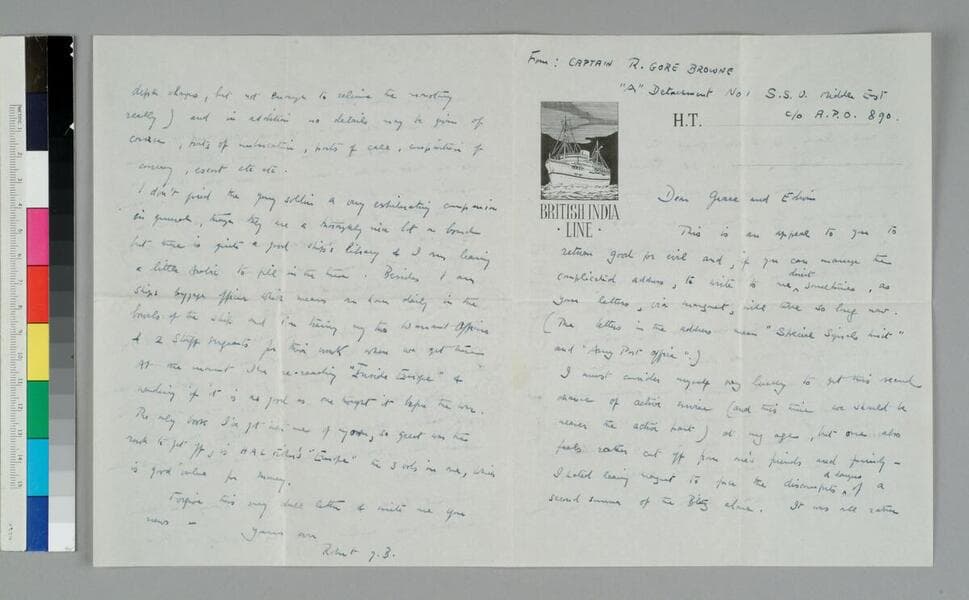 From: CAPTAIN R. GORE BROWNE
"A" Detachment No 1 S.S.U. Middle East
c/o A.P.O. 890.
H.T.
BRITISH INDIA
· LINE ·
Dear Grace and Edwin
This is an appeal to you to
return good for evil and, if you can manage the
complicated address, to write to me direct sometimes, as
your letters, via margaret, will take so long now.
(The letters in the address mean "Special Signals Unit"
and "Army Post Office".)
I must consider myself very lucky to get this second
chance of active service (and this time we should be
nearer the active part) at my age, but one also
feels rather cut off from one's friends and family –
I hated leaving margaret to face the discomforts & dangers of a
second summer of the Blitz alone. It was all rather
deeper, but not enough to relieve the monotony
really) and in addition no details may be given of
course, ports of embarkation, ports of call, composition of
convoy, escort etc etc.
I don't find the young soldier a very exhilarating companion
in general, though they are a thoroughly nice lot on board
but there is quite a good ship's library & I am
a little to fill in the time. Besides I am
ship's baggage officer which means an hour daily in the
bowels of the ship and I'm training my two Warrant Officers
& 2 Staff Sergeants for their work when we get there
At the moment I'm re-reading "Inside Europe" &
wondering if it is as good as one thought it before the war.
The only book I've got with me of my own, so great was the
rush to get off, is H.A.L. Fisher's "Europe" the 3 vols in one, which
is good value for money.
Forgive this very dull letter & write me your
news –
Yours ever
Robert G.B.